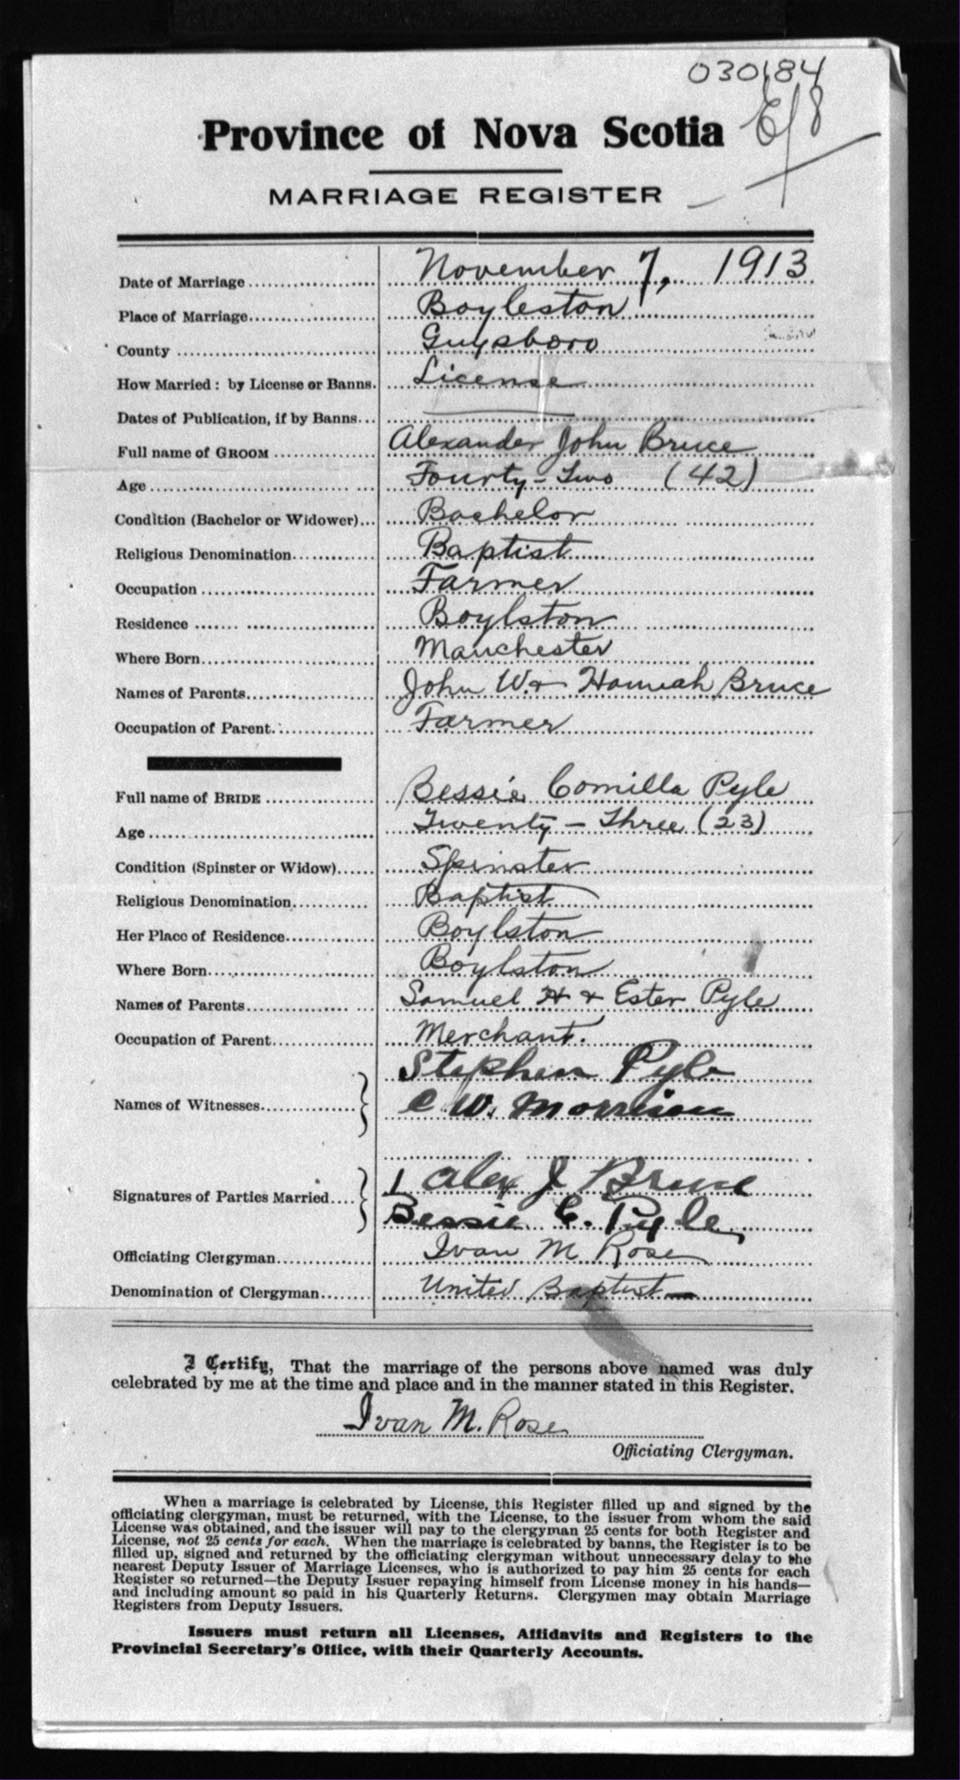 030184
E/8
Province of Nova Scotia
MARRIAGE REGISTER
Date of Marriage November 7, 1913
Place of Marriage Boyleston
County Guysboro
How Married: by License or Banns. License
Dates of Publication, if by Banns
Full name of GROOM Alexander John Bruce
Age Fourty-Two (42)
Condition (Bachelor or Widower) Bachelor
Religious Denomination Baptist
Occupation Farmer
Residence Boylston
Where Born Manchester
Names of Parents John W. + Hannah Bruce
Occupation of Parent Farmer
Full name of BRIDE Bessie Comilla Pyle
Age Twenty-Three (23)
Condition (Spinster or Widow) Spinster
Religious Denomination Baptist
Her Place of Residence Boylston
Where Born Boylston
Names of Parents Samuel H + Ester Pyle
Occupation of Parent Merchant.
Stephen Pyle
Names of Witnesses C W. Morrison
Signatures of Parties Married 1 Alex J Bruce
Bessie C. Pyle
Officiating Clergyman Ivan M Rose
Denomination of Clergyman United Baptist
I Certify, That the marriage of the persons above named was duly
celebrated by me at the time and place and in the manner stated in this Register.
Ivan M. Rose
Officiating Clergyman.
When a marriage is celebrated by License, this Register filled up and signed by the
officiating clergyman, must be returned, with the License, to the issuer from whom the said
License was obtained, and the issuer will pay to the clergyman 25 cents for both Register and
License, not 25 cents for each. When the marriage is celebrated by banns, the Register is to be
filled up, signed and returned by the officiating clergyman without unnecessary delay to the
nearest Deputy Issuer of Marriage Licenses, who is authorized to pay him 25 cents for each
Register so returned—the Deputy Issuer repaying himself from License money in his hands—
and including amount so paid in his Quarterly Returns. Clergymen may obtain Marriage
Registers from Deputy Issuers.
Issuers must return all Licenses, Affidavits and Registers to the
Provincial Secretary's Office, with their Quarterly Accounts.